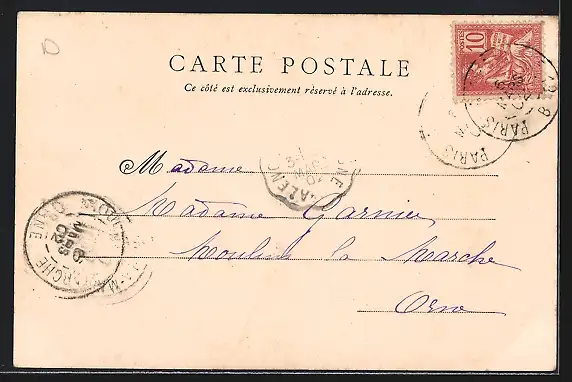 CARTE POSTALE
Ce côté est exclusivement réservé à l'adresse.
POSTES 10
PARIS
PARIS
Madame
Madame Garnier
Moulins la Marche
Orne
MARS
02
ORNE